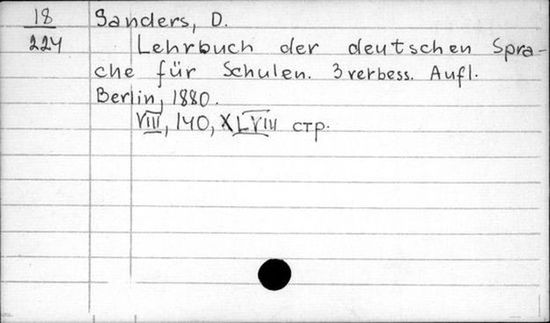 18
224
Sanders, D.
Lehrbuch der deutschen Spra-
che für Schulen. 3 verbess. Aufl.
Berlin, 1880.
VIII, 140, XLVIII стр.